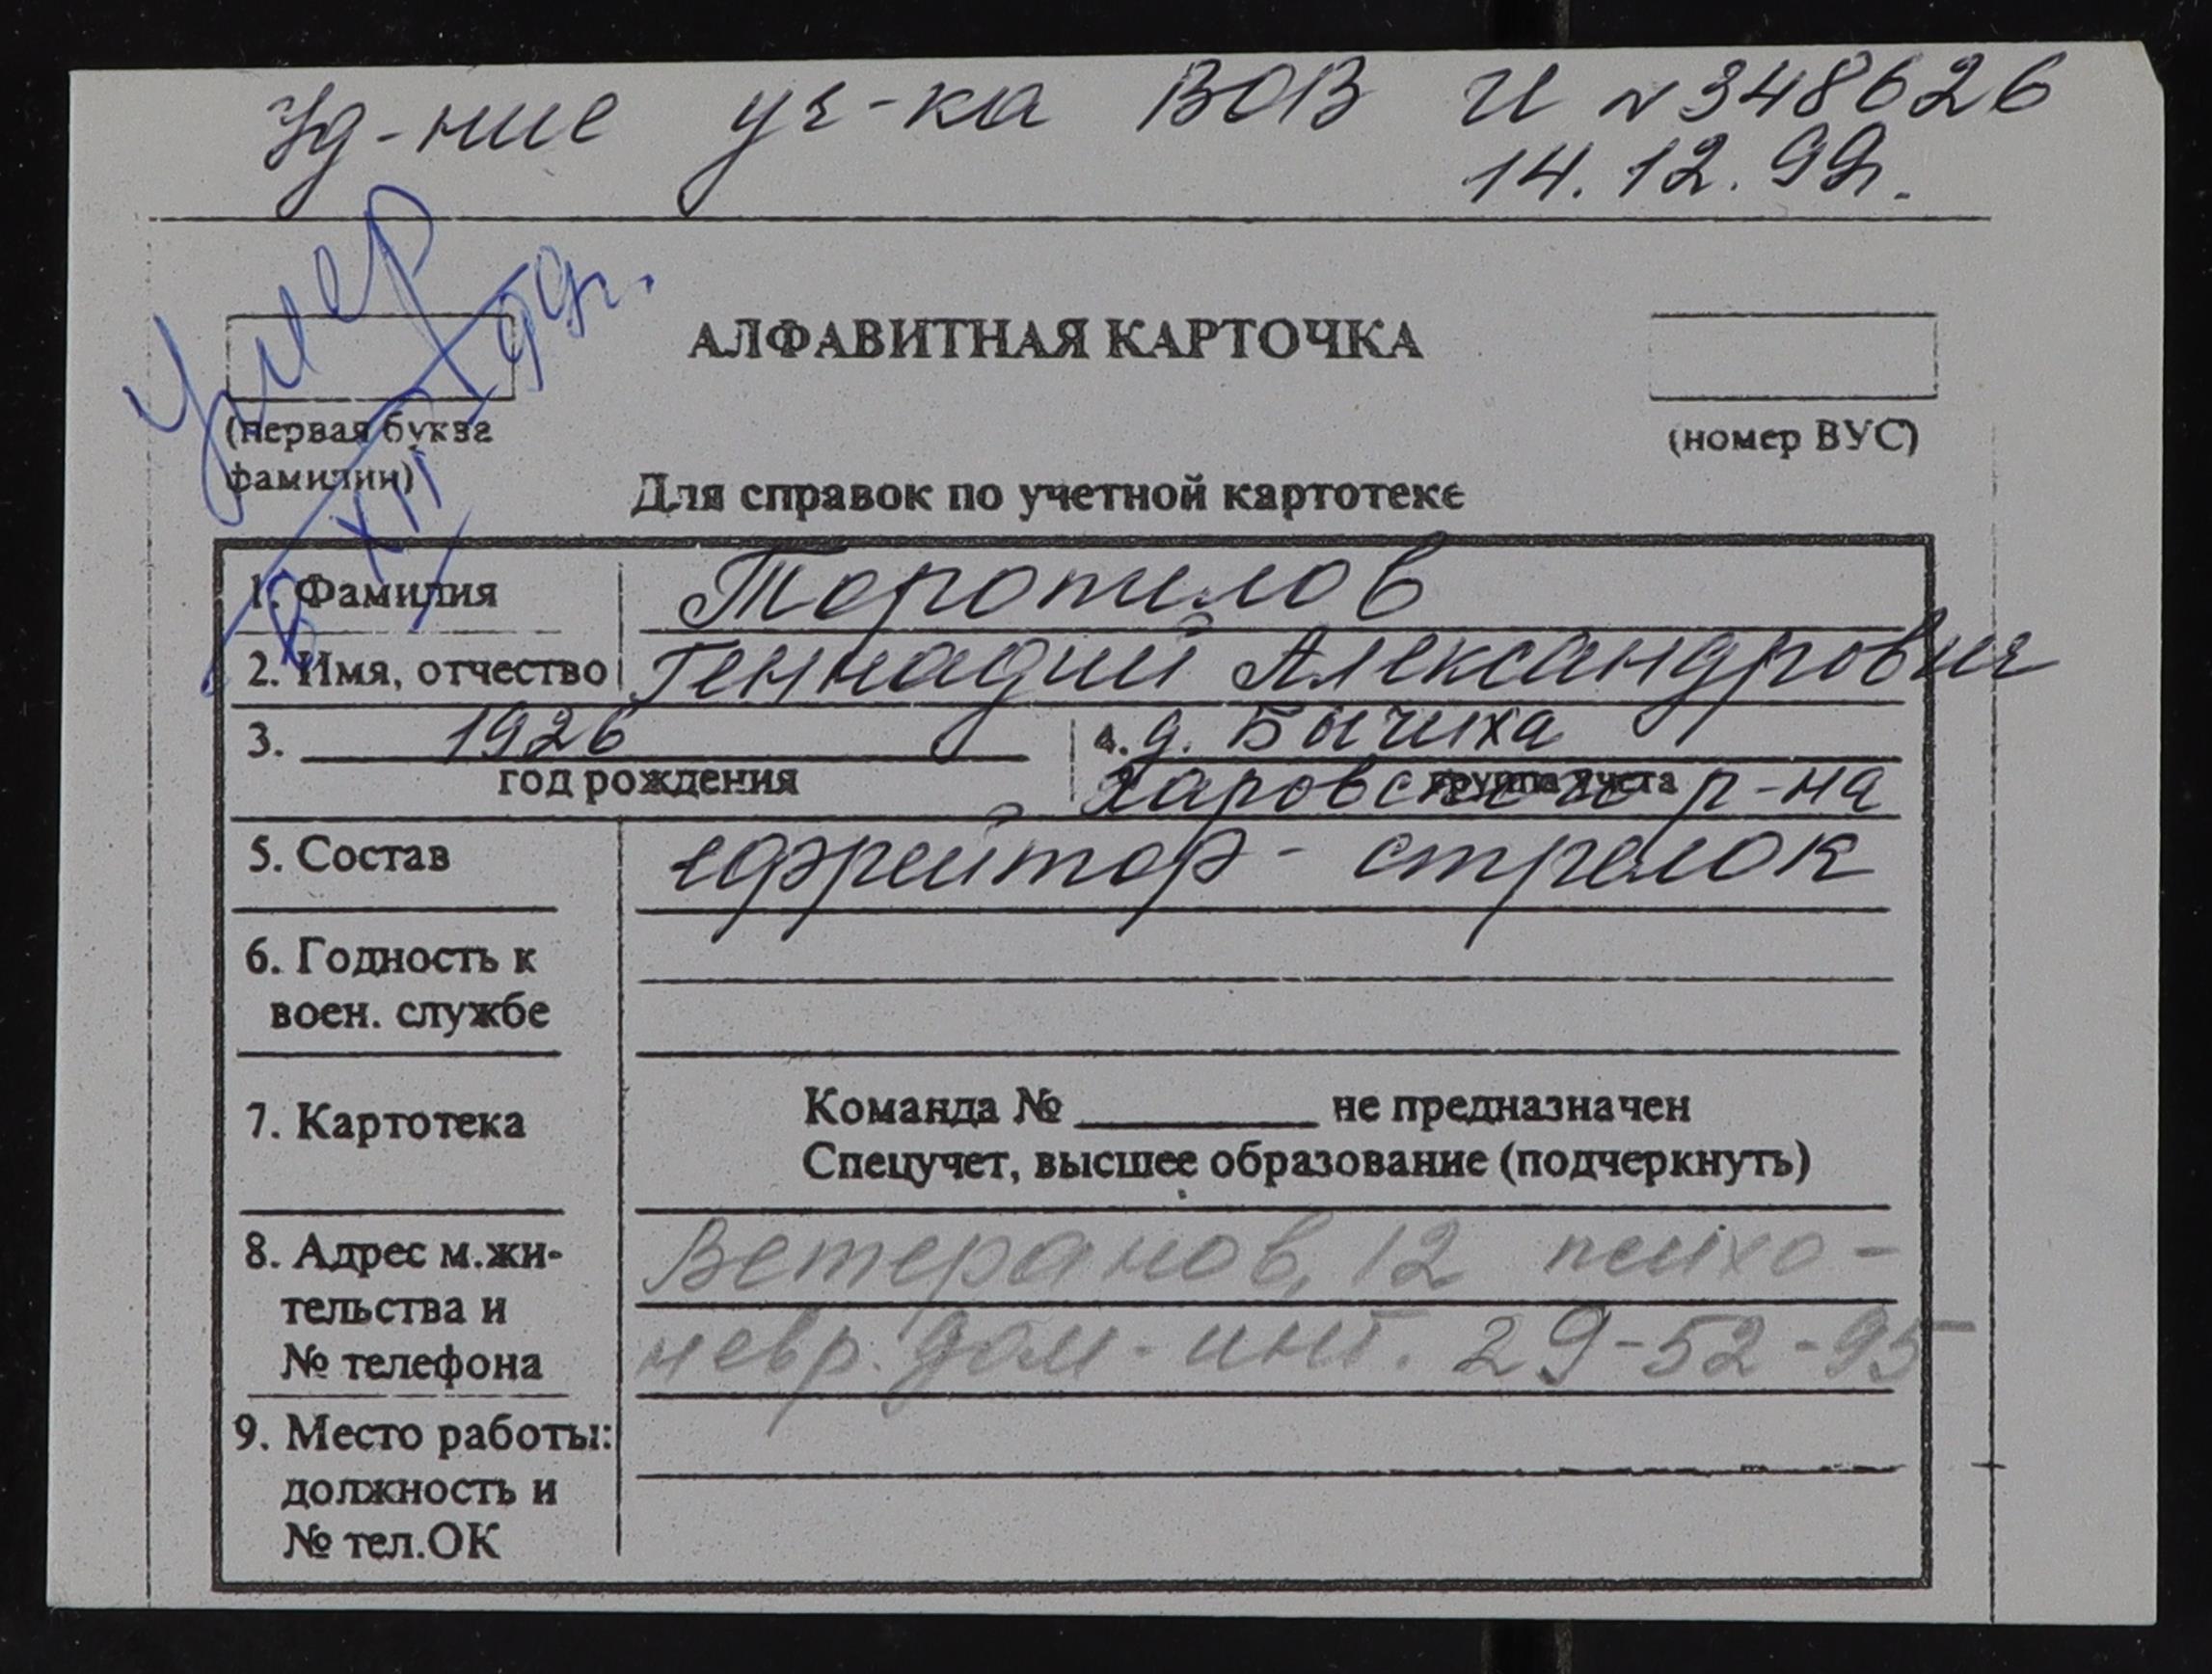 Уд-ние уч-ка ВОВ И №348626
14.12.99г.
Умер
XII 99г.
АЛФАВИТНАЯ КАРТОЧКА
(первая буква
фамилии)
(номер ВУС)
Для справок по учетной картотеке
1. Фамилия Торопилов
2. Имя, отчество Геннадий Александрович
3. 1926 4. д. Бычиха
год рождения группа учета
Харовского р-на
5. Состав ефрейтор - стрелок
6. Годность к
воен. службе
7. Картотека
Команда № не предназначен
Спецучет, высшее образование (подчеркнуть)
8. Адрес м.жи- Ветеранов, 12 психо-
тельства и
№ телефона невр. дом-инт. 29-52-95
9. Место работы:
должность и
№ тел.ОК